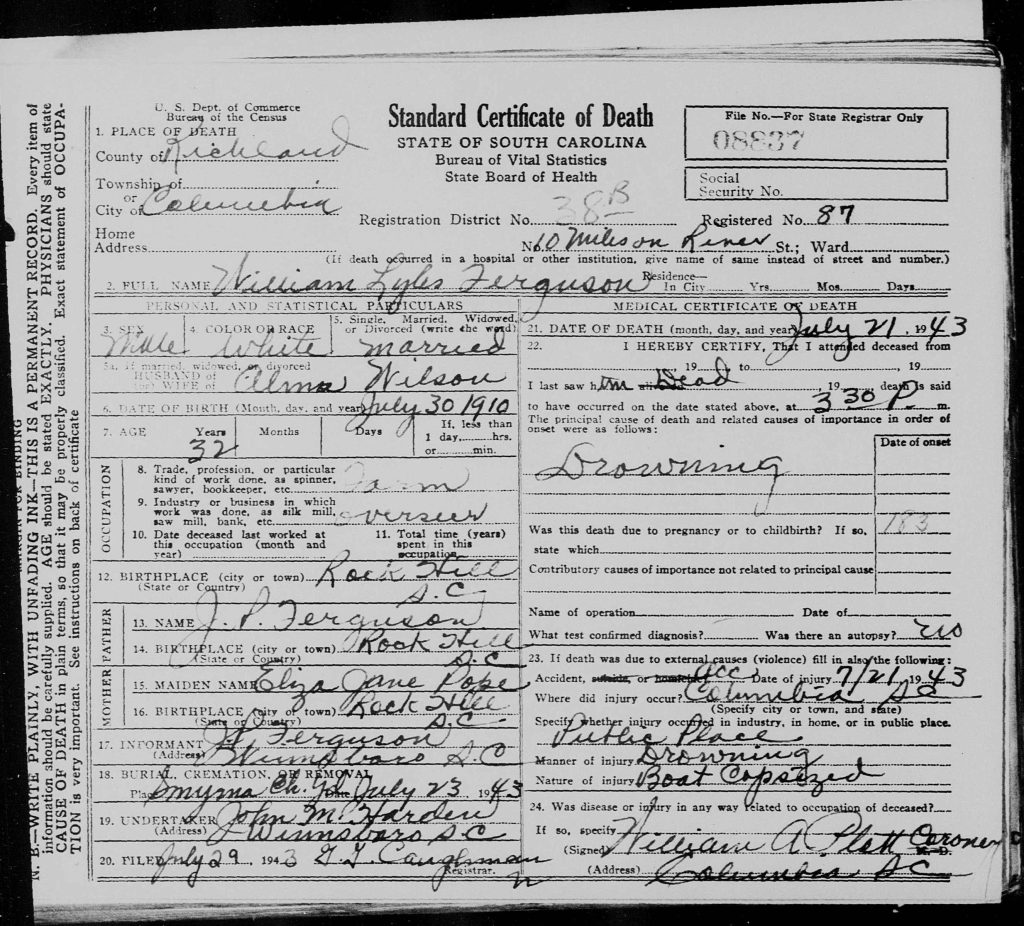 U. S. Dept. of Commerce
Bureau of the Census
Standard Certificate of Death
STATE OF SOUTH CAROLINA
Bureau of Vital Statistics
State Board of Health
File No.—For State Registrar Only
08837
Social
Security No.
1. PLACE OF DEATH
County of Richland
Township of
or
City of Columbia
Registration District No. 38B
Registered No. 87
Home
Address
No. 10 Miles on River St.; Ward
(If death occurred in a hospital or other institution, give name of same instead of street and number.)
2. FULL NAME William Lyles Ferguson
Residence—
In City Yrs. Mos. Days
PERSONAL AND STATISTICAL PARTICULARS
3. SEX
Male
4. COLOR OR RACE
White
5. Single, Married, Widowed,
or Divorced (write the word)
married
5a. If married, widowed, or divorced
HUSBAND of
(or) WIFE of Alma Wilson
6. DATE OF BIRTH (Month, day, and year) July 30 1910
7. AGE Years Months Days If less than
1 day, hrs.
32 or min.
OCCUPATION
8. Trade, profession, or particular
kind of work done, as spinner,
sawyer, bookkeeper, etc. Farm
9. Industry or business in which
work was done, as silk mill,
saw mill, bank, etc. overseer
10. Date deceased last worked at
this occupation (month and
year)
11. Total time (years)
spent in this
occupation
12. BIRTHPLACE (city or town) Rock Hill
(State or Country) S.C
FATHER
13. NAME J. P. Ferguson
14. BIRTHPLACE (city or town) Rock Hill
(State or Country) S.C
MOTHER
15. MAIDEN NAME Eliza Jane Pope
16. BIRTHPLACE (city or town) Rock Hill
(State or Country) S.C
17. INFORMANT Ferguson
(Address) Winnsboro S.C
18. BURIAL, CREMATION, OR REMOVAL
Place Smyrna Ch. July 23, 1943
19. UNDERTAKER John M. Harden
(Address) Winnsboro S.C
20. FILED July 29, 1943 Caughman
Registrar.
MEDICAL CERTIFICATE OF DEATH
21. DATE OF DEATH (month, day, and year) July 21, 1943
22. I HEREBY CERTIFY, That I attended deceased from
, 19 to , 19
I last saw him alive on Dead , 19 , death is said
to have occurred on the date stated above, at 3 30 P m.
The principal cause of death and related causes of importance in order of
onset were as follows:
Date of onset
Drowning
183
Was this death due to pregnancy or to childbirth? If so,
state which
Contributory causes of importance not related to principal cause
Name of operation Date of
What test confirmed diagnosis? Was there an autopsy? no
23. If death was due to external causes (violence) fill in also the following:
Accident, suicide, or homicide? Acc Date of injury 7/21, 1943
Where did injury occur? Columbia SC
(Specify city or town, and state)
Specify whether injury occurred in industry, in home, or in public place.
Public Place
Manner of injury Drowning
Nature of injury Boat Capsized
24. Was disease or injury in any way related to occupation of deceased?
If so, specify
(Signed) William A Platt Coroner M. D.
(Address) Columbia SC
MARGIN FOR BINDING
N. B.—WRITE PLAINLY, WITH UNFADING INK—THIS IS A PERMANENT RECORD. Every item of
information should be carefully supplied. AGE should be stated EXACTLY. PHYSICIANS should state
CAUSE OF DEATH in plain terms, so that it may be properly classified. Exact statement of OCCUPA-
TION is very important. See instructions on back of certificate